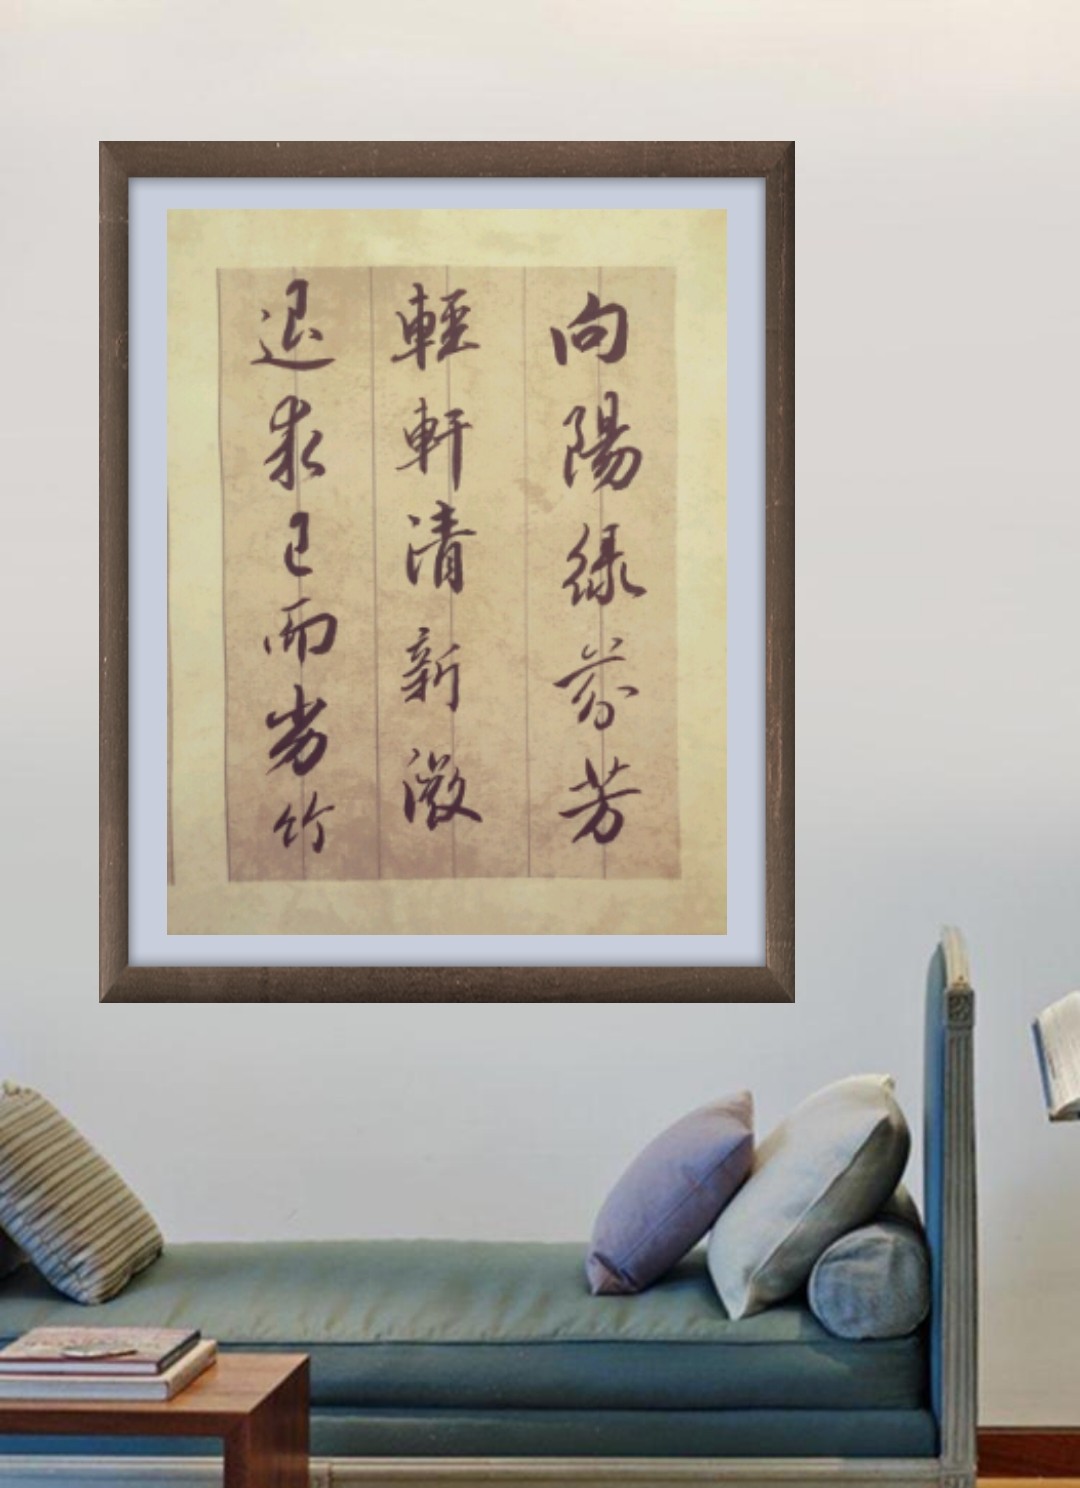 向陽綠芬芳
輕軒清新澂
退求已而劣竹